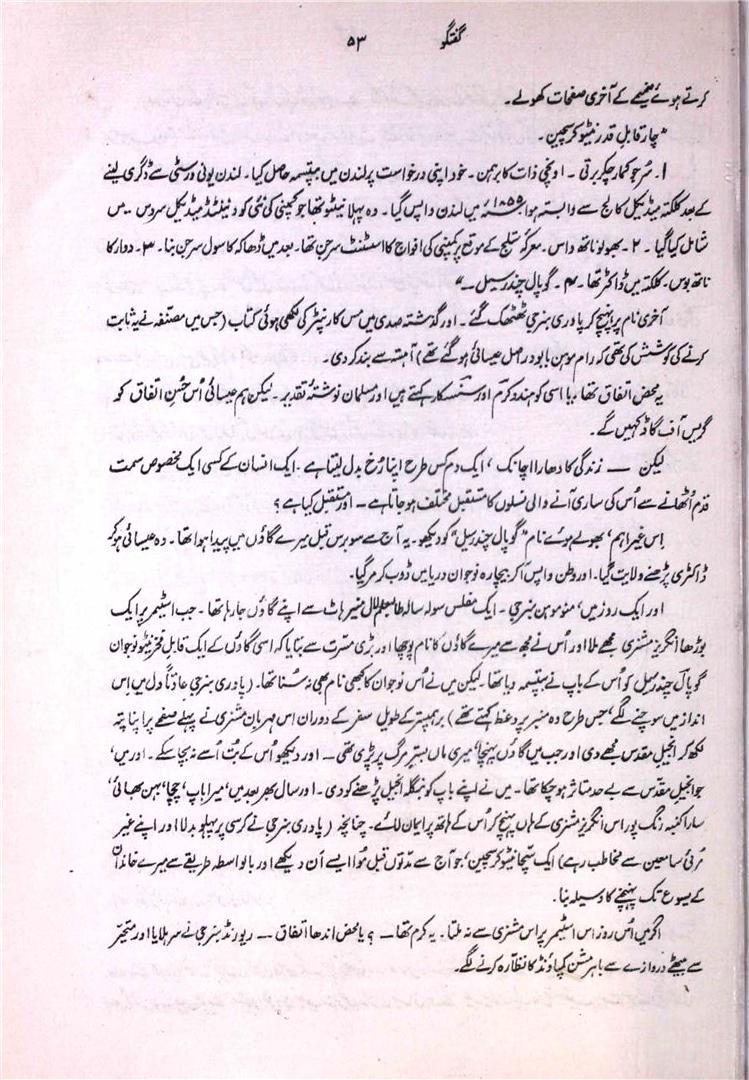 گفتگو ۵۳
کرتے ہوئے ضمیمے کے آخری صفحات کھولے۔
"چار قابلِ قدر نیٹو کرسچین۔
۱۔ سُرجو کمار چکر برتی ۔ اونچی ذات کا برہمن ۔ خود اپنی درخواست پر لندن میں بپتسمہ حاصل کیا۔ لندن یونی ورسٹی سے ڈگری لینے
کے بعد کلکتہ میڈیکل کالج سے وابستہ ہوا ۱۸۵۵ء میں لندن واپس گیا۔ وہ پہلا نیٹو تھا جو کمپنی کی نئی کو وینینٹڈ میڈیکل سروس میں
شامل کیا گیا ۔ ۲۔ بھولوناتھ داس ۔ معرکۂ ستلج کے موقع پر کمپنی کی افواج کا اسسٹنٹ سرجن تھا۔ بعد میں ڈھاکہ کا سول سرجن بنا۔ ۳۔ دوارکا
ناتھ بوس ۔ کلکتہ میں ڈاکٹر تھا۔ ۴۔ گوپال چندر سیل ۔"
آخری نام پر پہنچ کر پادری بنرجی ٹھٹھک گئے۔ اور گذشتہ صدی میں مس کارپنٹر کی لکھی ہوئی کتاب (جس میں مصنّفہ نے یہ ثابت
کرنے کی کوشش کی تھی کہ رام موہن بابو دراصل عیسائی ہو گئے تھے) آہستہ سے بند کر دی۔
یہ محض اتفاق تھا، یا اسی کو ہندو کرم اور سنسکار کہتے ہیں اور مسلمان نوشتۂ تقدیر۔ لیکن ہم عیسائی اُس حُسنِ اتفاق کو
گریس آف گاڈ کہیں گے۔
لیکن — زندگی کا دھارا اچانک ، ایک دم کس طرح اپنا رُخ بدل لیتا ہے ۔ ایک انسان کے کسی ایک مخصوص سمت
قدم اُٹھانے سے اُس کی ساری آنے والی نسلوں کا مستقبل مختلف ہو جاتا ہے ۔ اور مستقبل کیا ہے ؟
اِس غیر اہم، بھولے ہوئے نام "گوپال چندر سیل" کو دیکھو۔ یہ آج سے سو برس قبل میرے گاؤں میں پیدا ہوا تھا۔ وہ عیسائی ہو کر
ڈاکٹری پڑھنے ولایت گیا۔ اور وطن واپس آ کر بیچارہ نوجوان دریا میں ڈوب کر مر گیا۔
اور ایک روز میں، منوموہن بنرجی ۔ ایک مفلس سولہ سالہ طالبعلم لال منیر ہاٹ سے اپنے گاؤں جا رہا تھا ۔ جب اسٹیمر پر ایک
بوڑھا انگریز مشنری مجھے ملا اور اُس نے مجھ سے میرے گاؤں کا نام پوچھا اور بڑی مسّرت سے بتایا کہ اسی گاؤں کے ایک قابلِ فخر نیٹو نوجوان
گوپال چندر سیل کو اُس کے باپ نے بپتسمہ دیا تھا۔ لیکن میں نے اُس نوجوان کا کبھی نام بھی نہ سُنا تھا۔ (پادری بنرجی عادتاً دل میں اس
انداز میں سوچنے لگے، جس طرح وہ منبر پر وعظ کہتے تھے) برہمپتر کے طویل سفر کے دوران اس مہربان مشنری نے پہلے صفحے پر اپنا پتہ
لکھ کر انجیلِ مقدس مجھے دی اور جب میں گاؤں پہنچا، میری ماں بسترِ مرگ پر پڑی تھی ۔ اور دیکھو اُس کے بُت اُسے نہ بچا سکے۔ اور میں،
جو انجیلِ مقدس سے بے حد متاثر ہو چکا تھا۔ میں نے اپنے باپ کو بنگلہ انجیل پڑھنے کو دی۔ اور سال بھر بعد میں، میرا باپ، چچا، بہن بھائی،
سارا کنبہ رنگ پور اس انگریز مشنری کے ہاں پہنچ کر اُس کے ہاتھ پر ایمان لائے۔ چنانچہ (پادری بنرجی نے کرسی پر پہلو بدلا اور اپنے غیر
مَرئی سامعین سے مخاطب رہے) ایک سچّا نیٹو کرسچین، جو آج سے مدّتوں قبل مُوا ایسے اَن دیکھے اور بالواسطہ طریقے سے میرے خاندان
کے یسوع تک پہنچنے کا وسیلہ بنا۔
اگر میں اُس روز اس اسٹیمر پر اس مشنری سے نہ ملتا ۔ یہ کرم تھا — ؟ یا محض اندھا اتفاق — ریورنڈ بنرجی نے سر ہلایا اور متحیّر
سے بیٹھے دروازے سے باہر مشن کمپاؤنڈ کا نظارہ کرنے لگے۔